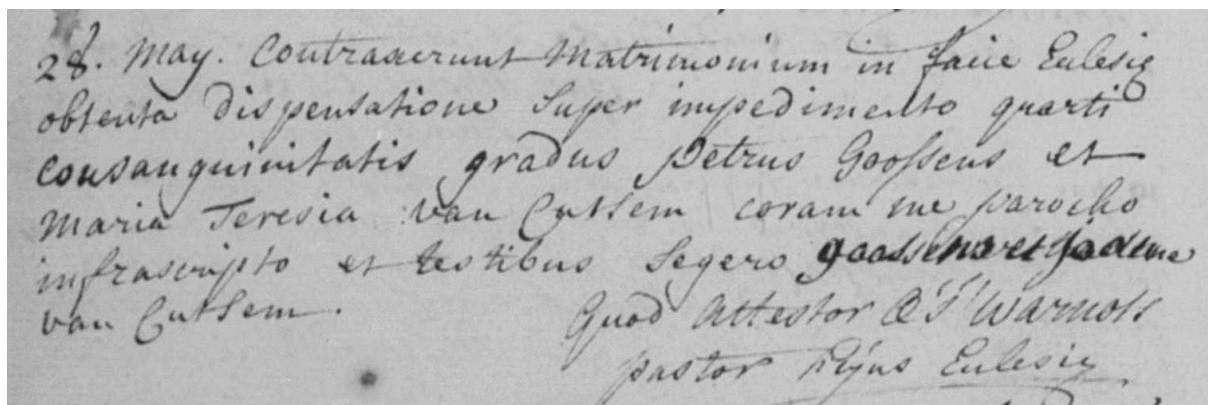 28. May. Contraxerunt Matrimonium in facie Eclesię
obtenta dispensatione super impedimento quarti
consanquinitatis gradus petrus Goossens et
Maria Teresia van Cutsem coram me parocho
infrascripto et testibus Segero goossens et
van Cutsem.
Quod Attestor Warnots
pastor hujus Eclesię